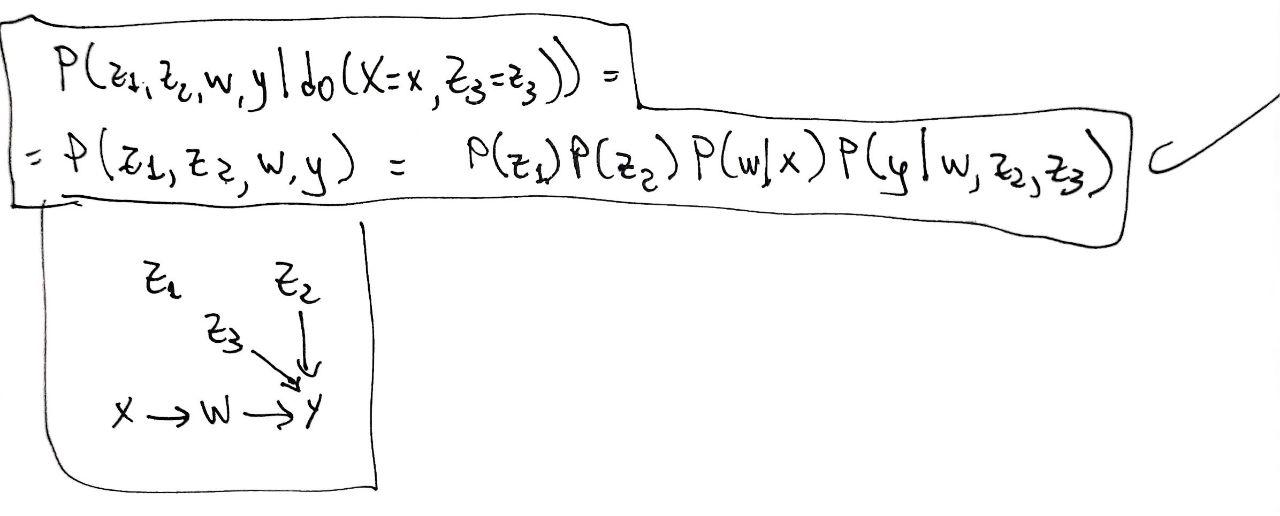 P(z₁, z₂, w, y | do(X=x, Z₃=z₃)) =
= P(z₁, z₂, w, y) = P(z₁) P(z₂) P(w|x) P(y|w, z₂, z₃)
Z₁ Z₂
Z₃
X → W → Y